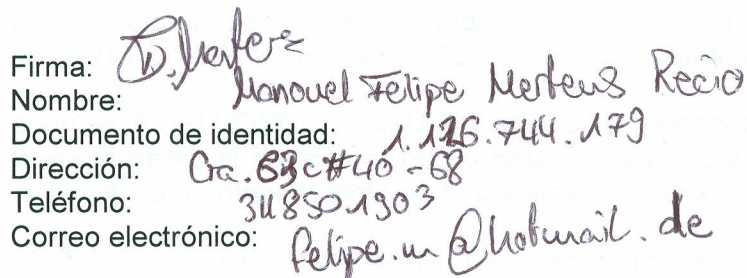 Firma: D. Mertens
Nombre: Manouel Felipe Mertens Recio
Documento de identidad: 1.126.744.179
Dirección: Cra. 63c#40-68
Teléfono: 3118501903
Correo electrónico: felipe.m@hotmail.de